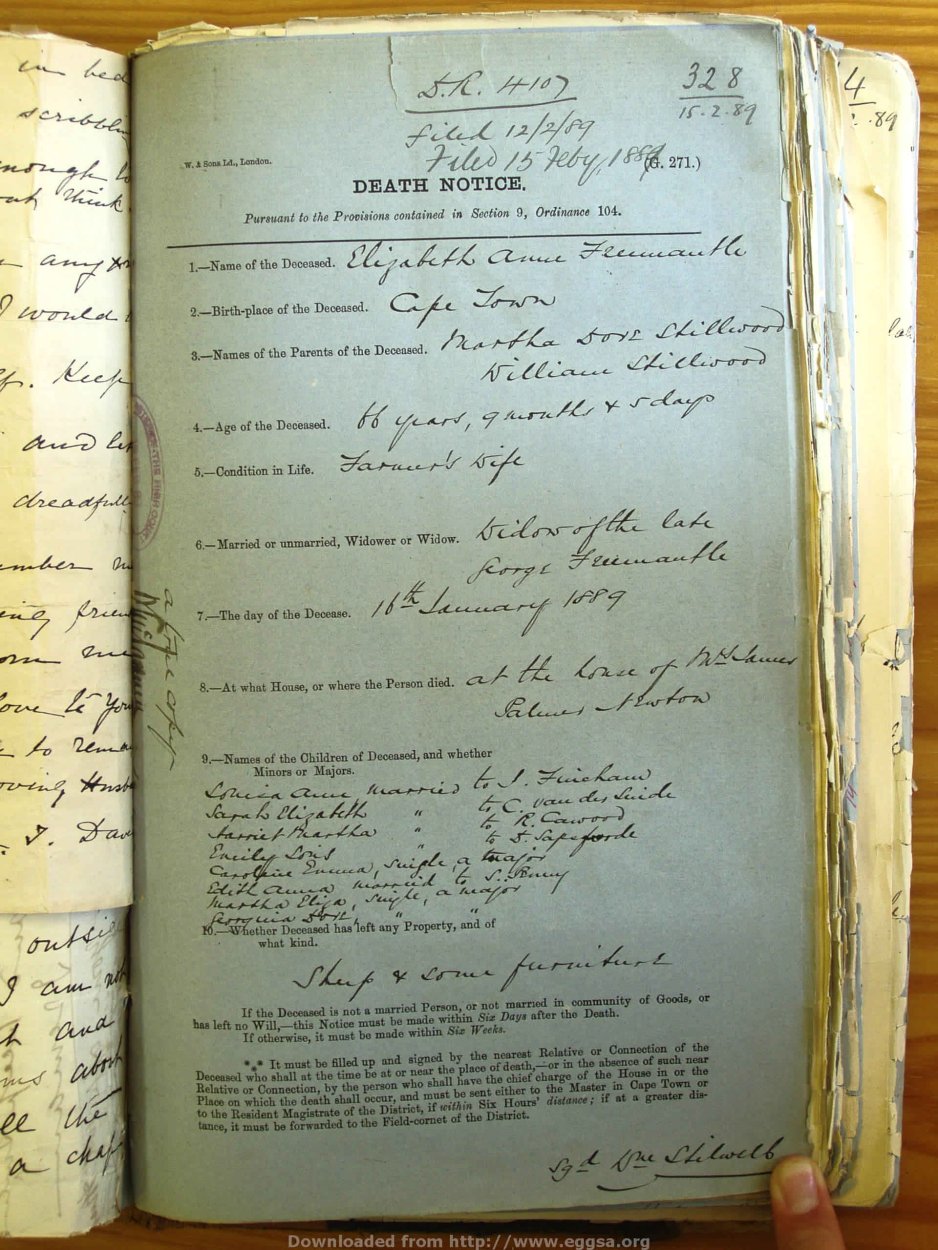 in bed
scribblin
nough t
think
any
I would
Keep
and let
dreadfull
mber
ing frien
me
ove to you
to rema
oving Husb
I. Dav
outsi
I am not
and
about
the
a chap
4
89
D.R. 4107
328
15.2.89
Filed 12/2/89
Filed 15 Feby, 1889
W. & Sons Ld., London.
(G. 271.)
DEATH NOTICE.
Pursuant to the Provisions contained in Section 9, Ordinance 104.
1.—Name of the Deceased. Elizabeth Anne Freemantle
2.—Birth-place of the Deceased. Cape Town
3.—Names of the Parents of the Deceased. Martha Dore Stillwood
William Stillwood
4.—Age of the Deceased. 66 years, 9 months & 5 days
5.—Condition in Life. Farmer's Wife
6.—Married or unmarried, Widower or Widow. Widow of the late
George Freemantle
7.—The day of the Decease. 16th January 1889
8.—At what House, or where the Person died. at the house of Mrs James
Palmer Newton
a true copy
9.—Names of the Children of Deceased, and whether
Minors or Majors.
Louisa Ann married to J. Fincham
Sarah Elizabeth " to C. van der Linde
Harriet Martha " to R. Cawood
Emily Loris " to D. Sapsforde
Caroline Emma, single, a major
Edith Anna married to S. Penny
Martha Eliza, single, a major
Georginia Dore, " "
10.—Whether Deceased has left any Property, and of
what kind.
Sheep & some furniture
If the Deceased is not a married Person, or not married in community of Goods, or
has left no Will,—this Notice must be made within Six Days after the Death.
If otherwise, it must be made within Six Weeks.
*** It must be filled up and signed by the nearest Relative or Connection of the
Deceased who shall at the time be at or near the place of death,—or in the absence of such near
Relative or Connection, by the person who shall have the chief charge of the House in or the
Place on which the death shall occur, and must be sent either to the Master in Cape Town or
to the Resident Magistrate of the District, if within Six Hours' distance; if at a greater dis-
tance, it must be forwarded to the Field-cornet of the District.
Sgd Wm Stilwell
Downloaded from http://www.eggsa.org